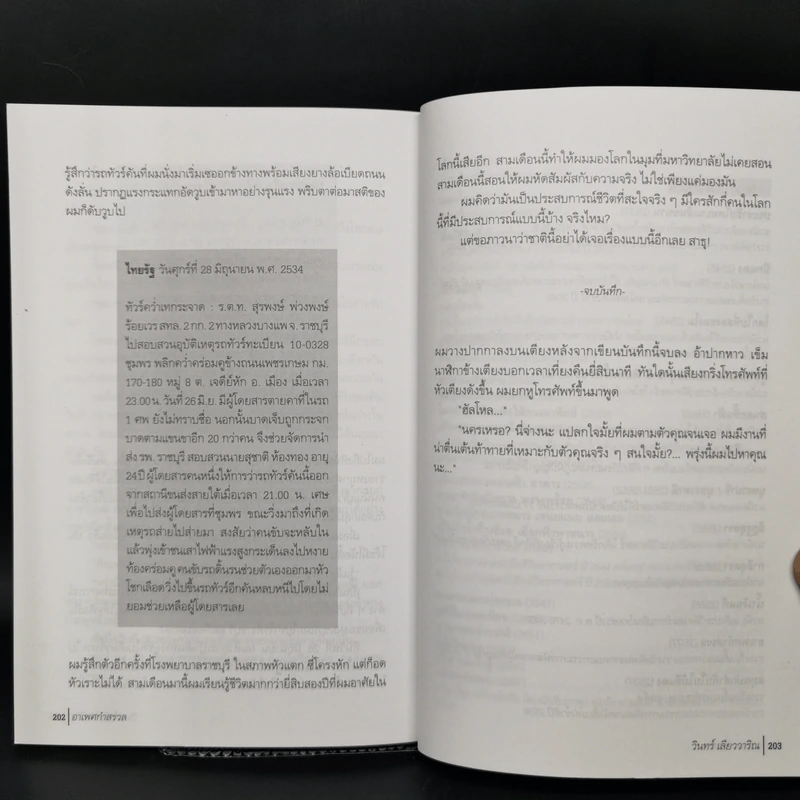 รู้สึกว่ารถทัวร์คันที่ผมนั่งมาเริ่มเซออกข้างทางพร้อมเสียงยางล้อเบียดถนน
ดังลั่น ปรากฏแรงกระแทกอัดวูบเข้ามาหาอย่างรุนแรง พริบตาต่อมาสติของ
ผมก็ดับวูบไป
ไทยรัฐ วันศุกร์ที่ 28 มิถุนายน พ.ศ. 2534
ทัวร์คว่ำเทกระจาด : ร.ต.ท. สุรพงษ์ พ่วงพงษ์
ร้อยเวร สทล. 2 กก. 2 ทางหลวงบางแพ จ. ราชบุรี
ไปสอบสวนอุบัติเหตุรถทัวร์ทะเบียน 10-0328
ชุมพร พลิกคว่ำคร่อมคูข้างถนนเพชรเกษม กม.
170-180 หมู่ 8 ต. เจดีย์หัก อ. เมือง เมื่อเวลา
23.00 น. วันที่ 26 มิ.ย. มีผู้โดยสารตายคาที่ในรถ
1 ศพ ยังไม่ทราบชื่อ นอกนั้นบาดเจ็บถูกกระจก
บาดตามแขนขาอีก 20 กว่าคน จึงช่วยจัดการนำ
ส่ง รพ. ราชบุรี สอบสวนนายสุชาติ ห้องทอง อายุ
24 ปี ผู้โดยสารคนหนึ่งให้การว่ารถทัวร์คันนี้ออก
จากสถานีขนส่งสายใต้เมื่อเวลา 21.00 น. เศษ
เพื่อไปส่งผู้โดยสารที่ชุมพร ขณะวิ่งมาถึงที่เกิด
เหตุรถส่ายไปส่ายมา สงสัยว่าคนขับจะหลับใน
แล้วพุ่งเข้าชนเสาไฟฟ้าแรงสูงกระเด็นลงไปหงาย
ท้องคร่อมคู คนขับรถดิ้นรนช่วยตัวเองออกมาหัว
โชกเลือดวิ่งไปขึ้นรถทัวร์อีกคันหลบหนีไปโดยไม่
ยอมช่วยเหลือผู้โดยสารเลย
ผมรู้สึกตัวอีกครั้งที่โรงพยาบาลราชบุรี ในสภาพหัวแตก ซี่โครงหัก แต่ก็อด
หัวเราะไม่ได้ สามเดือนมานี้ผมเรียนรู้ชีวิตมากกว่ายี่สิบสองปีที่ผมอาศัยใน
202 อาเพศกำสรวล
โลกนี้เสียอีก สามเดือนนี้ทำให้ผมมองโลกในมุมที่มหาวิทยาลัยไม่เคยสอน
สามเดือนนี้สอนให้ผมหัดสัมผัสกับความจริง ไม่ใช่เพียงแค่มองมัน
ผมคิดว่ามันเป็นประสบการณ์ชีวิตที่สะใจจริง ๆ มีใครสักกี่คนในโลก
นี้ที่มีประสบการณ์แบบนี้บ้าง จริงไหม?
แต่ขอภาวนาว่าชาตินี้อย่าได้เจอเรื่องแบบนี้อีกเลย สาธุ!
-จบบันทึก-
ผมวางปากกาลงบนเตียงหลังจากเขียนบันทึกนี้จบลง อ้าปากหาว เข็ม
นาฬิกาข้างเตียงบอกเวลาเที่ยงคืนยี่สิบนาที ทันใดนั้นเสียงกริ่งโทรศัพท์ที่
หัวเตียงดังขึ้น ผมยกหูโทรศัพท์ขึ้นมาพูด
"ฮัลโหล..."
"นครเหรอ? นี่จ่างนะ แปลกใจมั้ยที่ผมตามตัวคุณจนเจอ ผมมีงานที่
น่าตื่นเต้นท้าทายที่เหมาะกับตัวคุณจริง ๆ สนใจมั้ย?... พรุ่งนี้ผมไปหาคุณ
นะ..."
วินทร์ เลียววาริณ 203